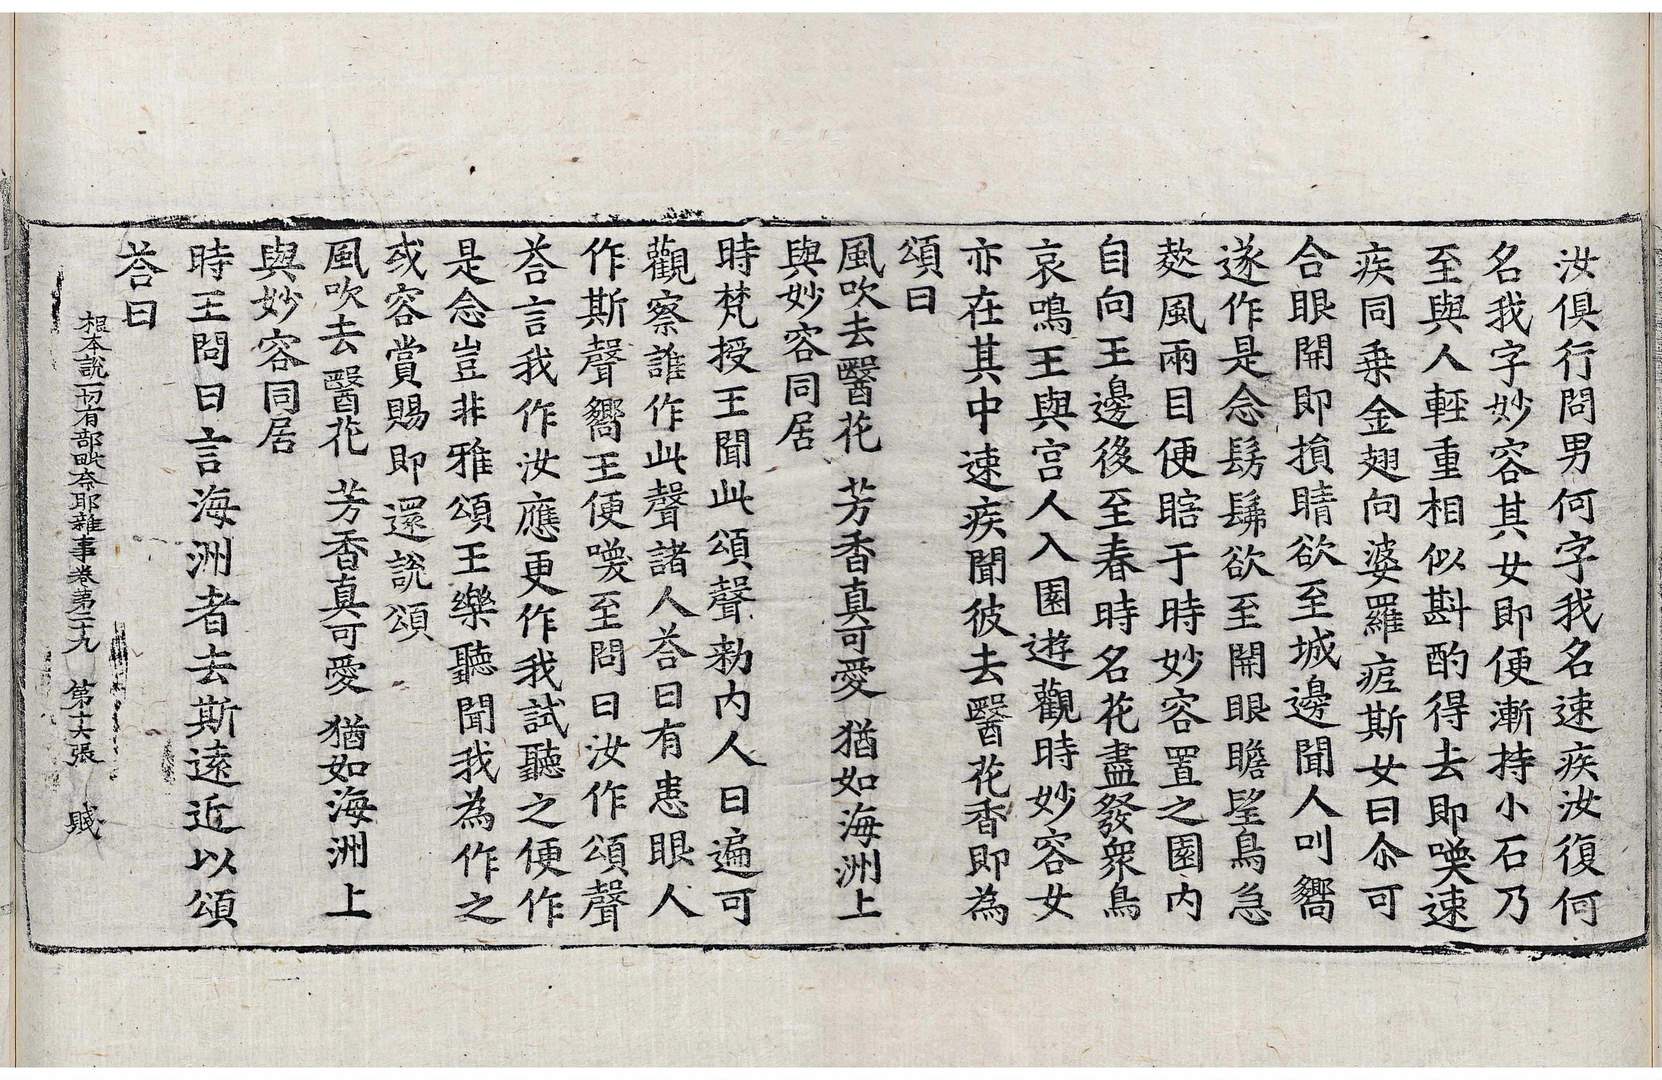 汝俱行問男何字我名速疾汝復何
名我字妙容其女即便漸持小石乃
至與人輕重相似斟酌得去即喚速
疾同乗金翅向婆羅痆斯女曰尒可
合眼開即損睛欲至城邊聞人叫嚮
遂作是念髣髴欲至開眼瞻望鳥急
欻風兩目便瞎于時妙容置之園內
自向王邊後至春時名花盡發衆鳥
哀鳴王與宮人入園遊觀時妙容女
亦在其中速疾聞彼去醫花香即為
頌曰
風吹去醫花　芳香真可愛　猶如海洲上
與妙容同居
時梵授王聞此頌聲勑內人曰遍可
觀察誰作此聲諸人荅曰有患眼人
作斯聲嚮王便喚至問曰汝作頌聲
荅言我作汝應更作我試聽之便作
是念豈非雅頌王樂聽聞我為作之
或容賞賜即還說頌
風吹去醫花　芳香真可愛　猶如海洲上
與妙容同居
時王問曰言海洲者去斯遠近以頌
荅曰
根本說一切有部毗奈耶雜事卷第二十九　第十六張　賤